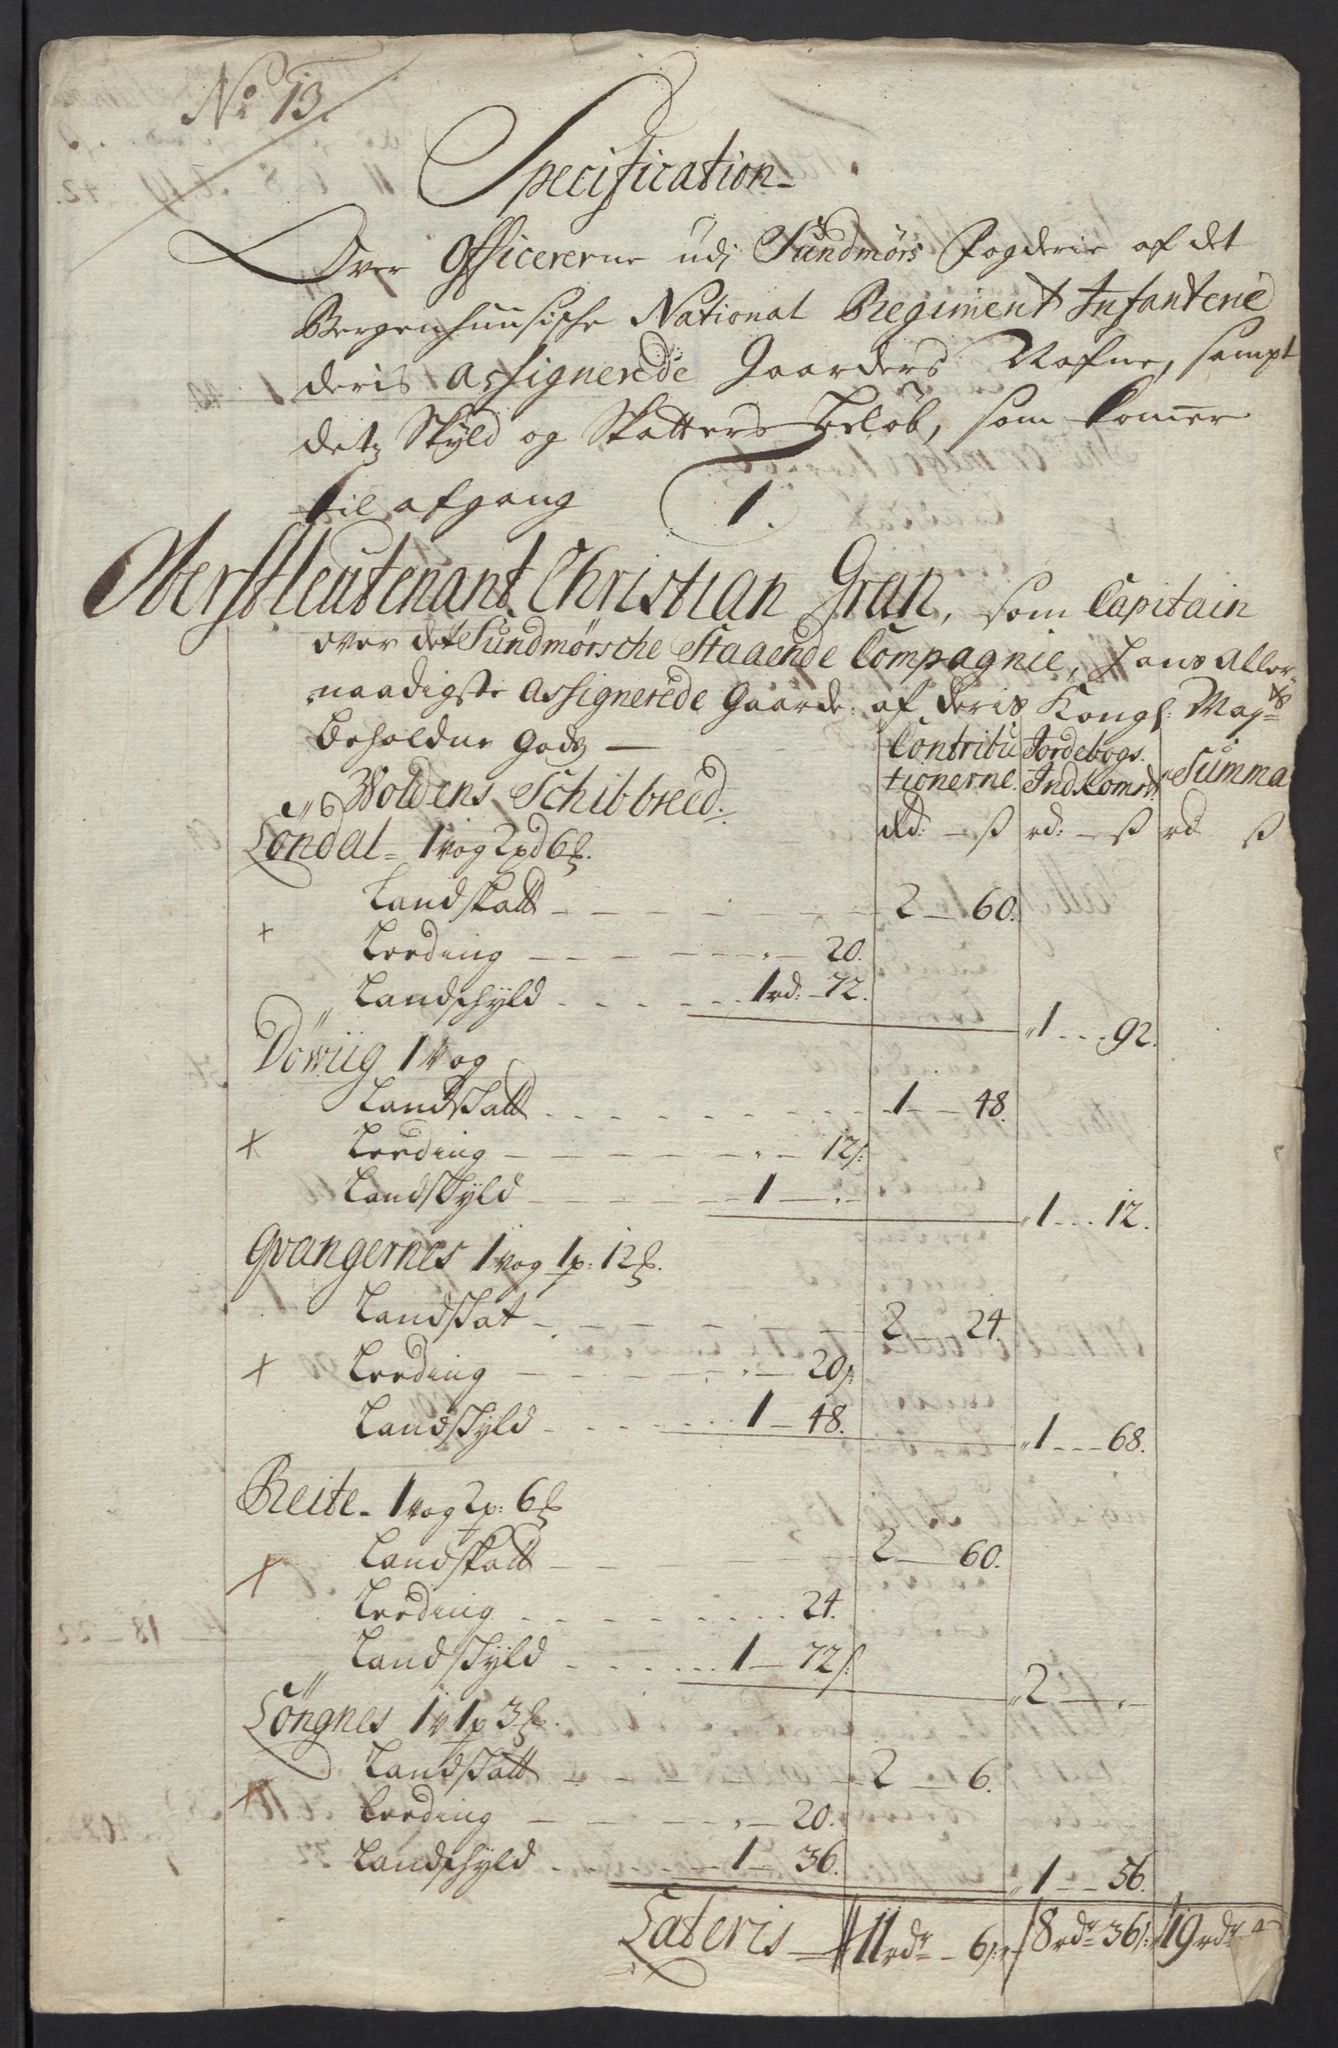 No 13.
Specification
Over Officererne udj Sundmørs Fogderie af det
Bergenhuusische National Regiment Infanterie
deris assignerede Gaarders Nafne, sampt
detz Skyld og Skatters Beløb, som komer
til afgang
1.
Oberstleutenant Christian Gran, som Capitain
over det Sundmørsche Staaende Compagnie, hans aller-
naadigste assignerede Gaarde af deris Kongl: Mayts
beholdne Godz —
Contribu Jordebogs
Woldens Schibbreed.
tionerne. Indkomst. Summa
Rd: — ß rd: — ß rd ß
Löndal - 1 vog 2 pd 6 ℔.
Landskatt - - - 2 — 60.
Leeding - - - " — 20.
Landschyld - - - 1 rd: — 72.
1 - - - 92.
Döwiig 1 vog
Landskatt - - - 1 — 48.
Leeding - - - " — 12ß:
Landskyld - - - 1 — " —
1 - - - 12.
Qvangernes 1 vog 1 p: 12 ℔.
Landskat - - - 2 — 24.
Leeding - - - " — 20ß:
Landskyld - - - 1 — 48.
1 - - - 68.
Reite - 1 vog 2 p: 6 ℔
Landskatt - - - 2 — 60.
Leeding - - - 24.
Landskyld - - - 1 — 72ß:
2 — " —
Löngnes 1 v 1 p 3 ℔.
Landskatt - - - 2 — 6.
Leeding - - - " — 20.
Landschyld - - - 1 — 36.
1 — 56.
Lateris — 11 rdr — 6ß: 8 rdr 36ß: 19 rdr